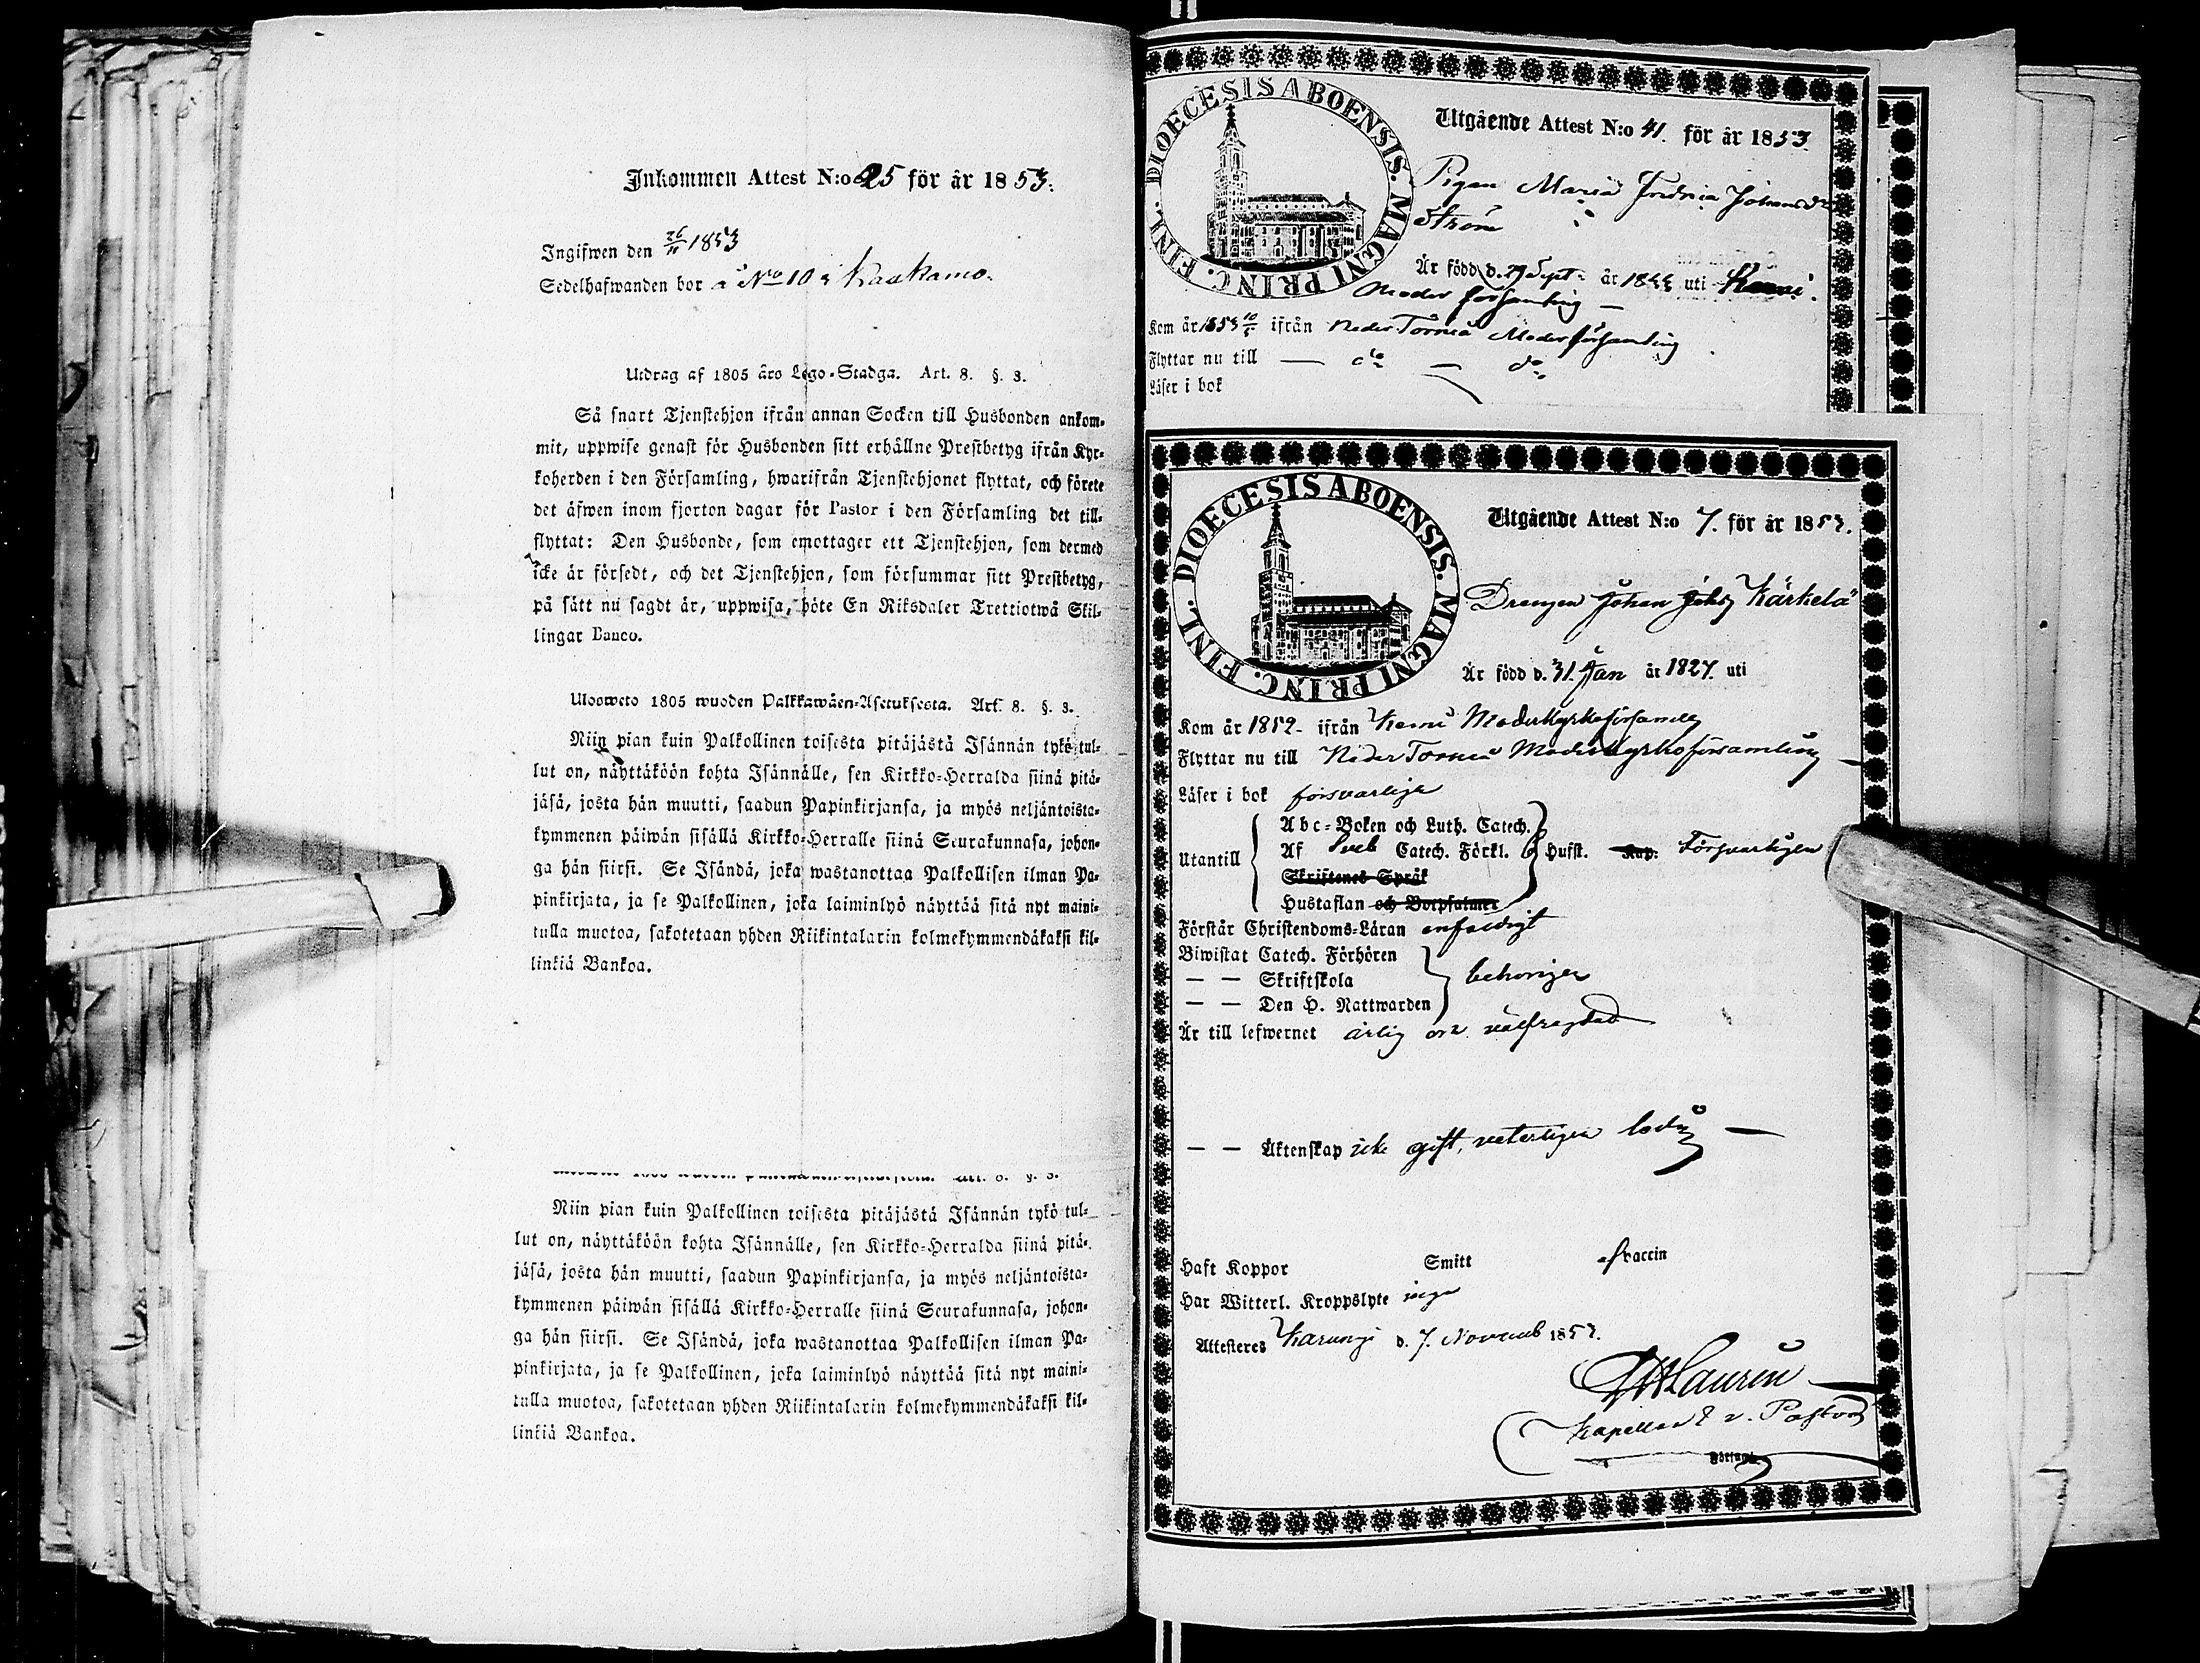 Inkommen Attest N:o 25 för år 1853.
Ingifwen den 26/11 1853
Sedelhafwanden bor å No 10 i Kaakamo.
Utdrag af 1805 års Lego-Stadga. Art. 8. §. 3.
Så snart Tjenstehjon ifrån annan Socken till Husbonden ankom-
mit, uppwise genast för Husbonden sitt erhållne Prestbetyg ifrån Kyr-
koherden i den Församling, hwarifrån Tjenstehjonet flyttat, och förete
det äfwen inom fjorton dagar för Pastor i den Församling det till-
flyttat: Den Husbonde, som emottager ett Tjenstehjon, som dermed
icke är försedt, och det Tjenstehjon, som försummar sitt Prestbetyg,
på sätt nu sagdt är, uppwisa, böte En Riksdaler Trettiotwå Skil-
lingar Banco.
Ulosweto 1805 wuoden Palkkawäen-Asetuksesta. Art. 8. §. 3.
Niin pian kuin Palkollinen toisesta pitäjästä Isännän tykö tul-
lut on, näyttäköön kohta Isännälle, sen Kirkko-Herralda siinä pitä-
jäsä, josta hän muutti, saadun Papinkirjansa, ja myös neljäntoista-
kymmenen päiwän sisällä Kirkko-Herralle siinä Seurakunnasa, johon-
ga hän siirsi. Se Isändä, joka wastanottaa Palkollisen ilman Pa-
pinkirjata, ja se Palkollinen, joka laiminlyö näyttää sitä nyt maini-
tulla muotoa, sakotetaan yhden Riikintalarin kolmekymmendäkaksi kil-
linkiä Bankoa.
Niin pian kuin Palkollinen toisesta pitäjästä Isännän tykö tul-
lut on, näyttäköön kohta Isännälle, sen Kirkko-Herralda siinä pitä-
jäsä, josta hän muutti, saadun Papinkirjansa, ja myös neljäntoista-
kymmenen päiwän sisällä Kirkko-Herralle siinä Seurakunnasa, johon-
ga hän siirsi. Se Isändä, joka wastanottaa Palkollisen ilman Pa-
pinkirjata, ja se Palkollinen, joka laiminlyö näyttää sitä nyt maini-
tulla muotoa, sakotetaan yhden Riikintalarin kolmekymmendäkaksi kil-
linkiä Bankoa.
DIOECESIS ABOENSIS. MAGNI PRINC. FINL.
Utgående Attest N:o 41. för år 1853.
Pigan Maria Johansdr
Ström
Är född d. 29 Sept. år 1833 uti Kemi.
Moder församling
Kom år 1853 ifrån Neder Torneå Moderförsamling
Flyttar nu till — do — do
Läser i bok
DIOECESIS ABOENSIS. MAGNI PRINC. FINL.
Utgående Attest N:o 7. för år 1853.
Drengen Johan Kärkelä
Är född d. 31. Jan år 1827. uti
Kom år 1852 ifrån Kemi Moderkyrkoförsamlg
Flyttar nu till Neder Torneå Moderkyrkoförsamling
Läser i bok försvarligt
Utantill
Abc-Boken och Luth. Catech.
Af Sveb Catech. Förkl. Husst. Kap: Försvarligen
Skriftenes Språk
Hustaflan och Botpsalmer
Förstår Christendoms-Läran enfaldigt
Biwistat Catech. Förhören
— — Skriftskola behörigen
— — Den H. Nattwarden
Är till lefwernet ärlig och välfrejdad
— — Äktenskap icke gift, veterligen ledig —
Haft Koppor Smitt Vaccin
Har Witterl. Kroppslyte inga
Attesteres Karungi d. 7. Novemb 1853.
Laurin
Kapellan & v. Pastor
Församl.